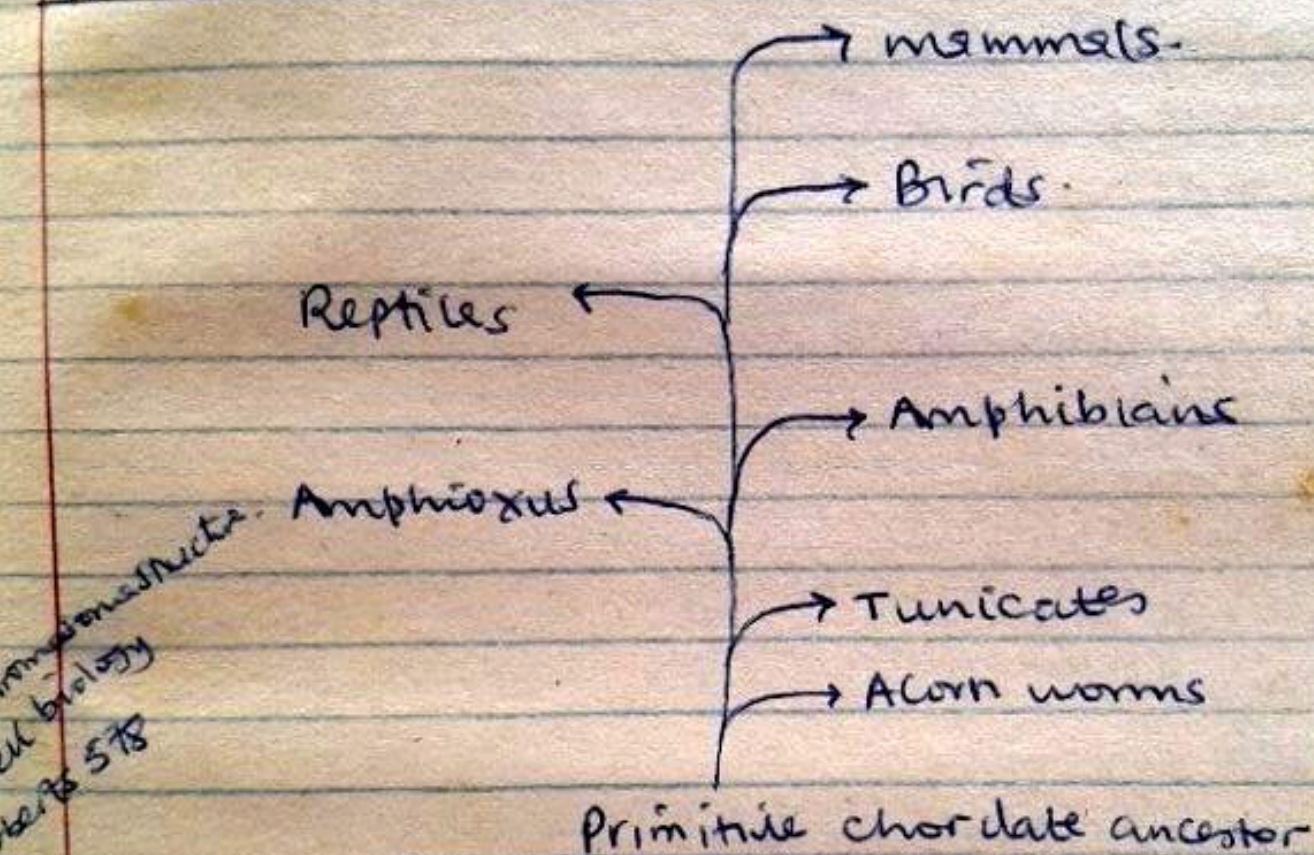 mammals.
Birds.
Reptiles
Amphibians
Amphioxus
Tunicates
Acorn worms
Primitive chordate ancestor
biology
578